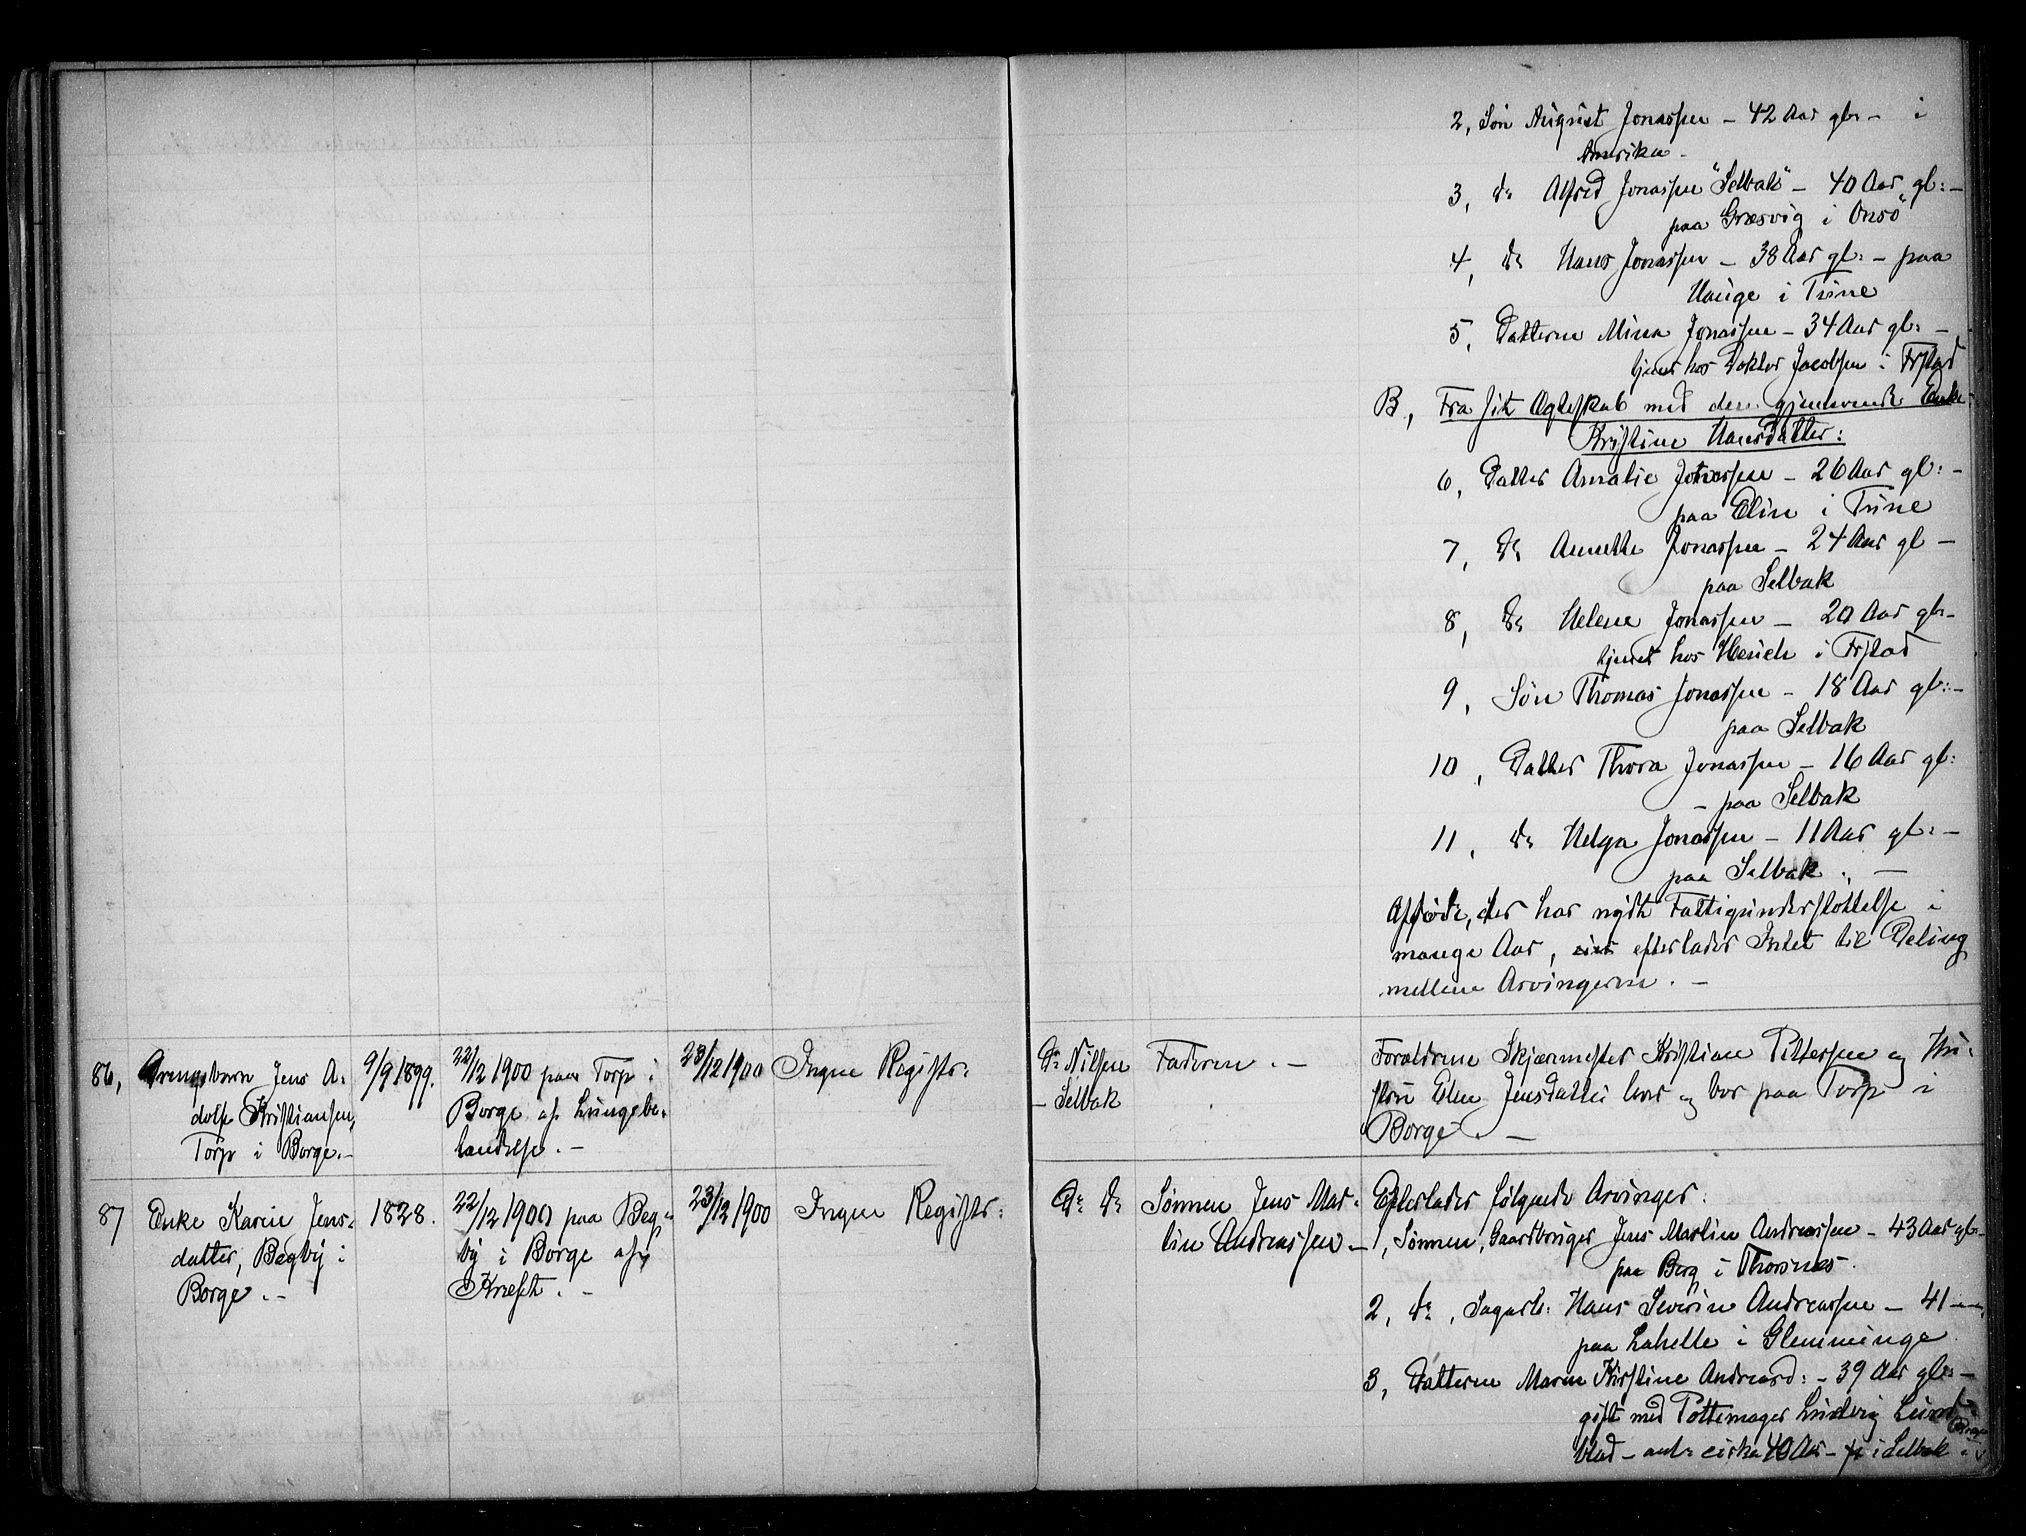 2, Søn August Jonassen – 42 Aar gl. – i
Amerika –
3, do Alfred Jonassen "Selbak" – 40 Aar gl: –
paa Græsvig i Onsö
4, do Hans Jonassen – 38 Aar gl: – paa
Hauge i Tune
5, Datteren Mina Jonassen – 34 Aar gl: –
tjener hos Doktor Jacobsen i Frstad
B, Fra sit Ægteskab med den gjenlevende Enke
Kristine Hansdatter:
6, Datter Amalie Jonassen – 26 Aar gl: –
paa Elin i Tune
7, do Annette Jonassen – 24 Aar gl –
paa Selbak
8, do Helene Jonassen – 20 Aar gl. –
tjener hos i Frstad
9, Søn Thomas Jonassen – 18 Aar gl: –
paa Selbak
10, Datter Thora Jonassen – 16 Aar gl:
– paa Selbak
11, do Helga Jonassen – 11 Aar gl: –
paa Selbak. –
Afdöde, der har nydt Fattigunderstøttelse i
mange Aar, efterlader Intet til Deling
mellem Arvingerne. –
86, Drengebarn Jens A-
dolf Kristiansen,
Torp i Borge. –
9/9 1899.
22/12 1900 paa Torp i
Borge af Lungebe-
tændelse. –
23/12 1900
Ingen Registr:
do Nilsen
– Selbak
Faderen. –
Forældrene Skjærmester Kristian Pettersen og Hu-
stru Elen Jensdatter lever og bor paa Torp i
Borge. –
87 Enke Karen Jens-
datter, Begby i
Borge. –
1828.
22/12 1900 paa Beg-
by i Borge af
Kræft. –
23/12 1900
Ingen Registr:
do do
Sønnen Jens Mar-
tin Andreassen –
Efterlader følgende Arvinger:
1, Sønnen, Gaardbruger Jens Martin Andreassen – 43 Aar gl. –
paa Berg i Thorsnes.
2, do, Sagarb: Hans Severin Andreassen – 41 –
paa Lahelle i Glemminge
3, Datteren Maren Kristine Andreasd: – 39 Aar gl. –
gift med Pottemager Ludvig Lund-
blad – ant. cirka 40 Aar – i Selbak i
Borge